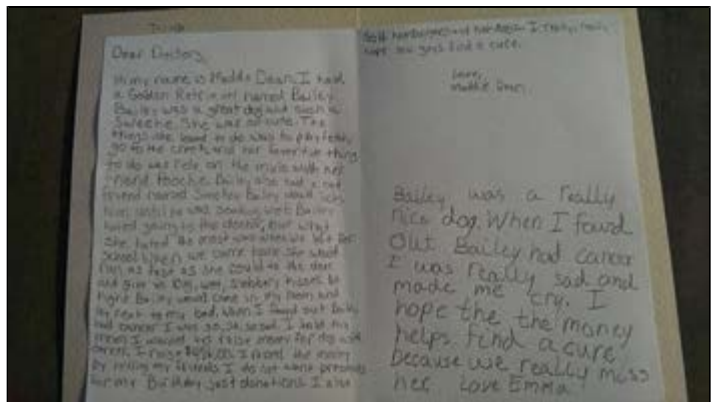 Dear Doctors,
Hi my name is Maddie Dean. I had
a Golden Retriever named Bailey.
Bailey was a great dog and such a
Sweetie. She was so cute. The
things she loved to do was to play fetch,
go to the creek, and her favorite thing
to do was ride on the mule with her
friend Pooche. Bailey also had a cat
friend named Sweetie. Bailey would lick
him until he was soaking wet. Bailey
hated going to the doctor, but what
she hated the most was when we left for
school. When we came home she would
run as fast as she could to the door
and give us big, wet, slobbery kisses. At
night Bailey would come in my room and
lay next to my bed. When I found out Bailey
had cancer I was so, so, so sad. I told my
mom I wanted to raise money for dog with
cancer. I raise the money
by telling my friends I do not want presents
for my Birthday, just donations. I also
sold hamburgers and hot dogs. I really, really
hope you guys find a cure.
Love,
Maddie Dean
Bailey was a really
nice dog. When I found
out Bailey had cancer
I was really sad and
made me cry. I
hope the the money
helps find a cure
because we really miss
her. Love Emma